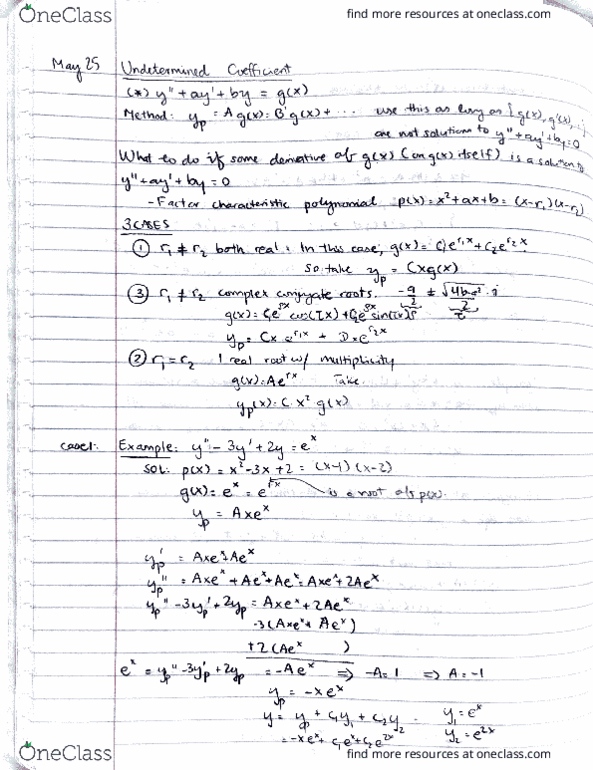 OneClass
find more resources at oneclass.com
May 25 Undetermined Coefficient
(*) y" + ay' + by = g(x)
Method: yp = A g(x) + B g'(x) + ... use this as long as {g(x), g'(x), ...}
are not solutions to y" + ay' + by = 0
What to do if some derivative of g(x) (or g(x) itself) is a solution to
y" + ay' + by = 0
- Factor characteristic polynomial p(x) = x² + ax + b = (x-r₁)(x-r₂)
3 CASES
① r₁ ≠ r₂ both real : In this case, g(x) = C₁e^{r₁x} + C₂e^{r₂x}
so take yp = Cxg(x)
③ r₁ ≠ r₂ complex conjugate roots. -a/2 ± √4b-a²/2 · i
g(x) = C₁e^{σx} cos(τx) + C₂e^{σx} sin(τx)
yp = Cx e^{r₁x} + Dxe^{r₂x}
② r₁ = r₂ 1 real root w/ multiplicity
g(x) = Ae^{rx} Take
yp(x) = C x² g(x)
case 1: Example: y" - 3y' + 2y = e^x
SOL: p(x) = x² - 3x + 2 = (x-1)(x-2)
g(x) = e^x = e^{1·x} is a root of p(x)
yp = Axe^x
yp' = Axe^x + Ae^x
yp" = Axe^x + Ae^x + Ae^x = Axe^x + 2Ae^x
yp" - 3yp' + 2yp = Axe^x + 2Ae^x
-3(Axe^x + Ae^x)
+2(Ae^x )
e^x = yp" - 3yp' + 2yp = -Ae^x ⇒ -A = 1 ⇒ A = -1
yp = -xe^x
y = yp + c₁y₁ + c₂y₂ y₁ = e^x
= -xe^x + c₁e^x + c₂e^{2x} y₂ = e^{2x}
OneClass
find more resources at oneclass.com